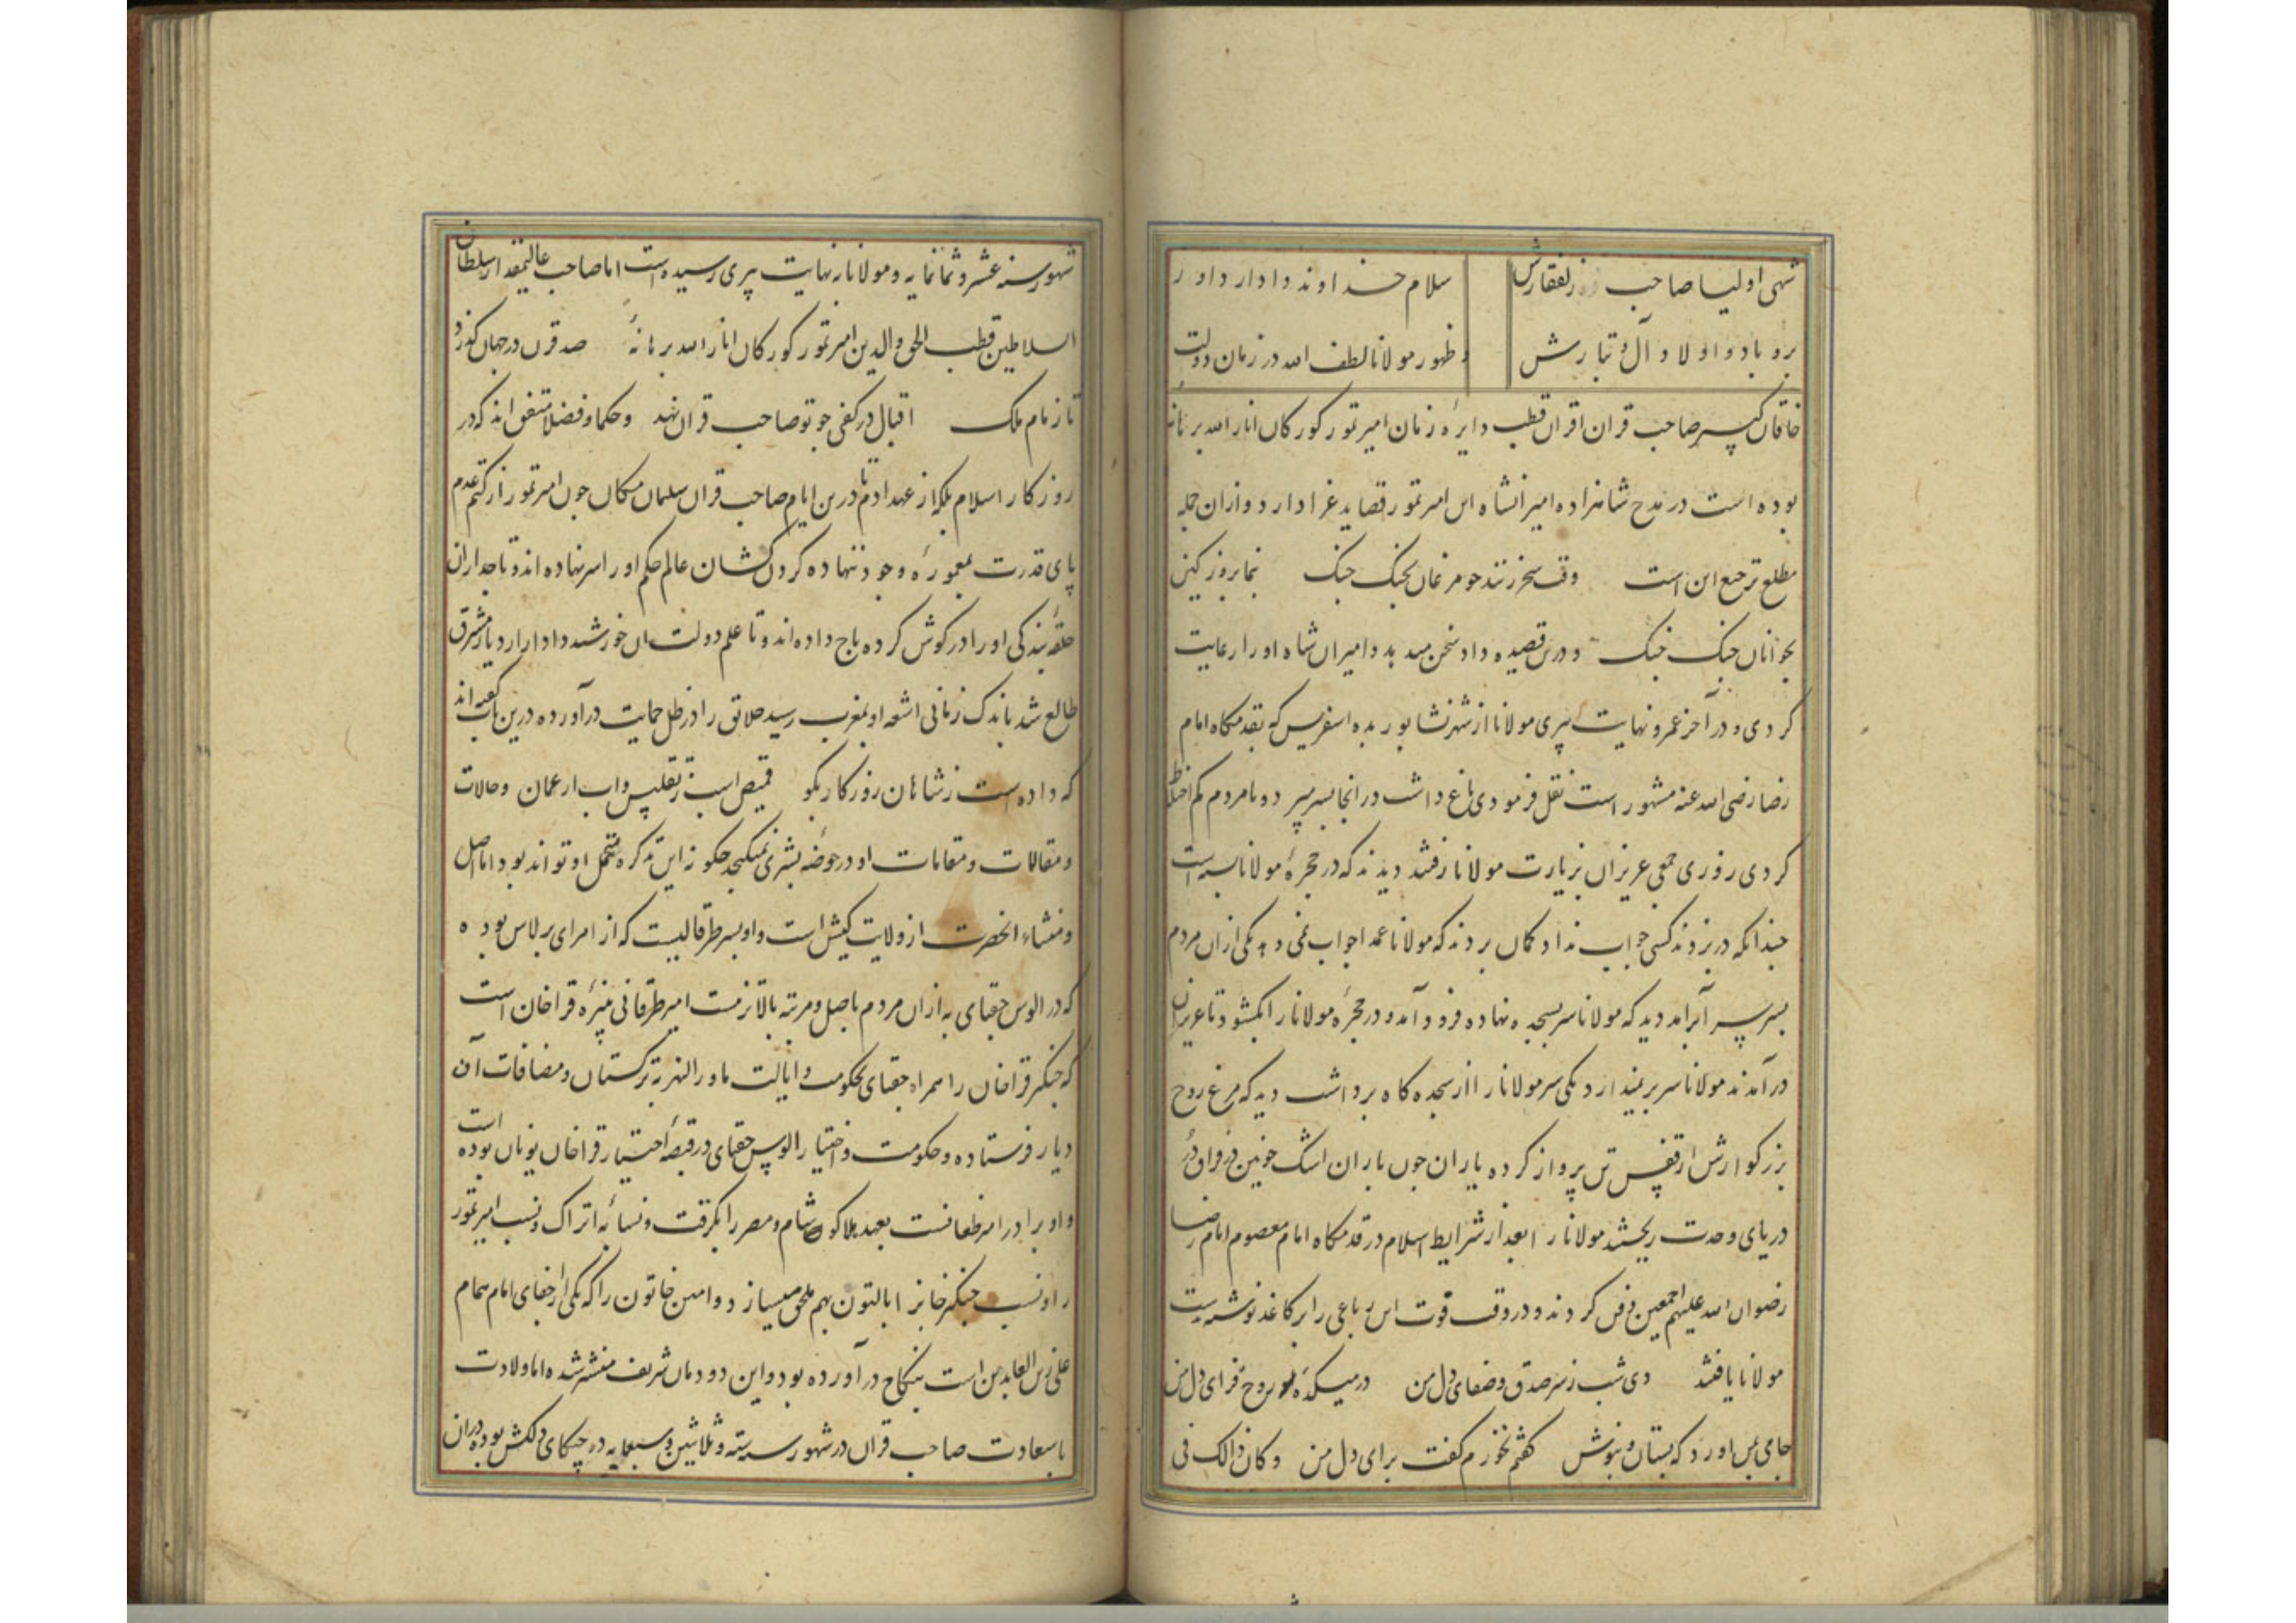 شهی اولیا صاحب ذوالفقارش سلام خداوند دادار داور
برو باد و اولاد و آل و تبارش و ظهور مولانا لطف الله در زمان دولت
خاقان کبیر صاحب قران اقران قطب دایرهٔ زمان امیر تمور کورکان انار الله برهانه
بوده است در مدح شاهزاده امیرانشاه ابن امیر تمور قصاید غرا دارد و ازان جمله
مطلع ترجیع این است وقت سحر زنند چو مرغان بچنک چنک بنما بروز کین
بجوانان جنک جنک و درین قصیده داد سخن میدهد و امیران شاه او را رعایت
کردی و در آخر عمر و نهایت پیری مولانا از شهر نشابور بده اسفریس که بقدمکاه امام
رضا رضی الله عنه مشهور است نقل فرمودی باغ داشت در انجا بسر میبرد و با مردم کم اختلاط
کردی روزی جمعی عزیزان بزیارت مولانا رفتند دیدند که در حجرهٔ مولانا بسته است
چندانکه در بزدند کسی جواب نداد کمان بردند که مولانا عمدا جواب نمی دهد یکی ازان مردم
بسر برآمد دید که مولانا سر بسجده نهاده فرود آمد و در حجرهٔ مولانا را بکشود تا عزیزان
درآمدند مولانا سر برنمیدارد یکی سر مولانا را از سجده کاه برداشت دید که مرغ روح
بزرکوارش از قفس تن پرواز کرده یاران چون باران اشک خونین در فراق در
دریای وحدت ریختند مولانا را بعد از شرایط اسلام در قدمکاه امام معصوم امام رضا
رضوان الله علیهم اجمعین دفن کردند و در وقت فوت این رباعی را بر کاغذ نوشته بدست
مولانا یافتند دی شب ز سر صدق و صفای دل من در میکده روح فزای دل من
جامی بمن اورد که بستان و بنوش کفتم نخورم کفت برای دل من وکان ذالک فی
شهور سنه عشر و ثمانمایه و مولانا بنهایت پیری رسیده است اما صاحب عالیمقدار سلطان
السلاطین قطب الحق والدین امیر تمور کورکان انار الله برهانه صد قرن در جهان کذرد
تا زمام ملک اقبال در کفی چو تو صاحب قران نهد و حکما و فضلا متفق اند که در
روزکار اسلام بلکه از عهد ادم تا درین ایام صاحب قران سلیمان مکان چون امیر تمور از کتم عدم
پای قدرت بمعمورهٔ وجود ننهاده کردن کشان عالم حکم او را سر نهاده اند و تاجداران
حلقهٔ بندکی او را در کوش کرده باج داده اند و تا علم دولت ان خورشید دادار از دیار مشرق
طالع شد باندک زمانی اشعه او بمغرب رسید خلایق را در ظل حمایت درآورده درین باب کفته اند
که داده است ز شاهان روزکار بکو قمیص اسب ز تقلیس واب از عمان و حالات
و مقالات و مقامات او در حوضه بشری نمیکنجد چکونه این تذکره متحمل او تواند بود اما اصل
و منشاء انحضرت از ولایت کیش است و او پسر طرقالیست که از امرای برلاس بوده
که در الوس جقتای به ازان مردم باصل و مرتبه بالاتر نیست امیر طرقانی نبیرهٔ قراخان است
که چنکیز قراخان را همراه جقتای بحکومت و ایالت ماورالنهر به ترکستان و مضافات آن
دیار فرستاده و حکومت و اختیار الوس جقتای در قبضهٔ اختیار قراخان یونان بوده است
و او برادر امیر طغا نست بعهد هلاکو شام و مصر را بکرفت و نسابهٔ اتراک و نسب امیر تمور
را و نسب چنکیز خانرا بالتون بهم ملحق میسازد و امین خاتون را که یکی از احفای امام همام
علی زین العابدین است بنکاح درآورده بود و این دودمان شریف منتشر شده اما ولادت
باسعادت صاحب قران در شهور سنه سته و ثلاثین و سبعمایه در جلکای دلکش بوده دران